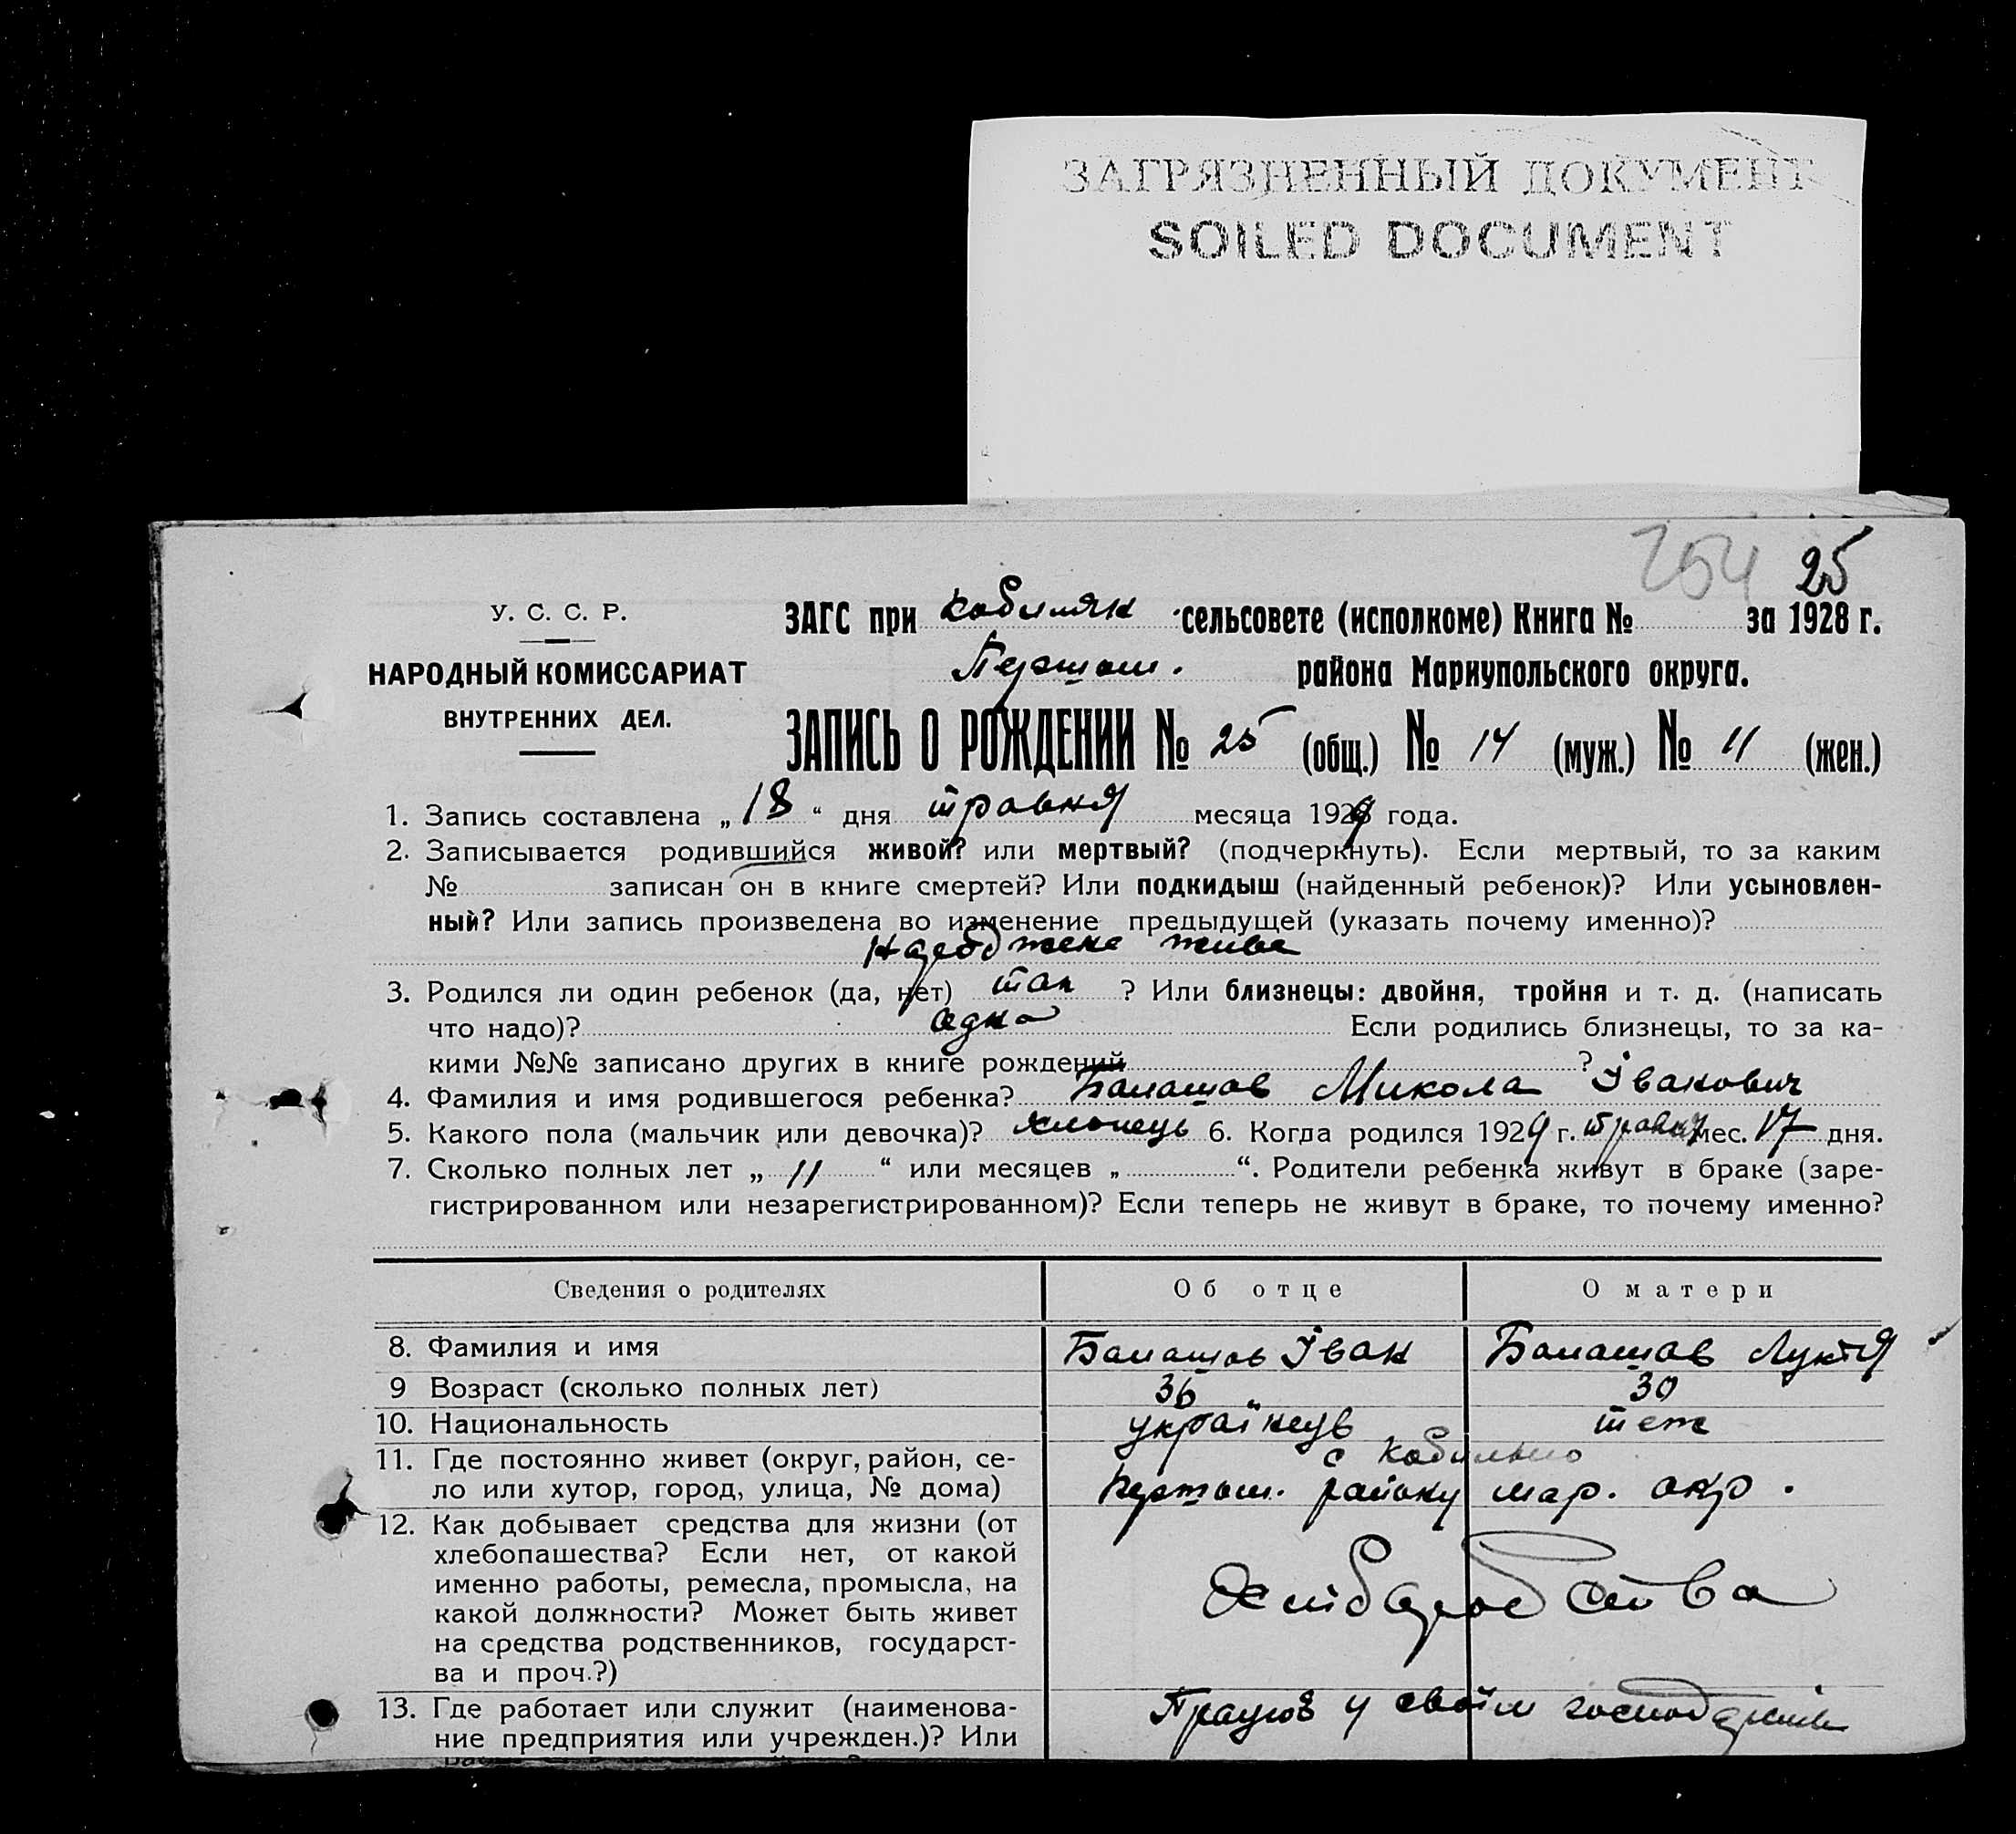 ЗАГРЯЗНЕННЫЙ ДОКУМЕНТ
SOILED DOCUMENT
254 25
У. С. С. Р.
НАРОДНЫЙ КОМИССАРИАТ
ВНУТРЕННИХ ДЕЛ.
ЗАГС при Кобиляк сельсовете (исполкоме) Книга № за 1928 г.
Першот. района Мариупольского округа.
ЗАПИСЬ О РОЖДЕНИИ № 25 (общ.) № 14 (муж.) № 11 (жен.)
1. Запись составлена „ 18 “ дня травня месяца 1929 года.
2. Записывается родившийся живой? или мертвый? (подчеркнуть). Если мертвый, то за каким
№ записан он в книге смертей? Или подкидыш (найденный ребенок)? Или усыновлен-
ный? Или запись произведена во изменение предыдущей (указать почему именно)?
живе
3. Родился ли один ребенок (да, нет) так ? Или близнецы: двойня, тройня и т. д. (написать
что надо)? одно Если родились близнецы, то за ка-
кими №№ записано других в книге рождений ?
4. Фамилия и имя родившегося ребенка? Балашов Микола Іванович
5. Какого пола (мальчик или девочка)? хлопець 6. Когда родился 1929 г. травня мес. 17 дня.
7. Сколько полных лет „ 11 “ или месяцев „ “. Родители ребенка живут в браке (заре-
гистрированном или незарегистрированном)? Если теперь не живут в браке, то почему именно?
Сведения о родителях Об отце О матери
8. Фамилия и имя Балашов Іван Балашов
9 Возраст (сколько полных лет) 36 30
10. Национальность українець теж
11. Где постоянно живет (округ, район, се-
ло или хутор, город, улица, № дома)
с Кобильно
Першот. району мар. окр.
12. Как добывает средства для жизни (от
хлебопашества? Если нет, от какой
именно работы, ремесла, промысла, на
какой должности? Может быть живет
на средства родственников, государст-
ва и проч.?)
Хлібаробства
13. Где работает или служит (наименова-
ние предприятия или учрежден.)? Или
Працює у своїм господарстві